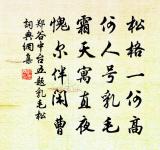 松格一何高
何人号乳毛
霜天寓直夜
愧尔伴闲曹
郑谷中台五题乳毛松
词典网集